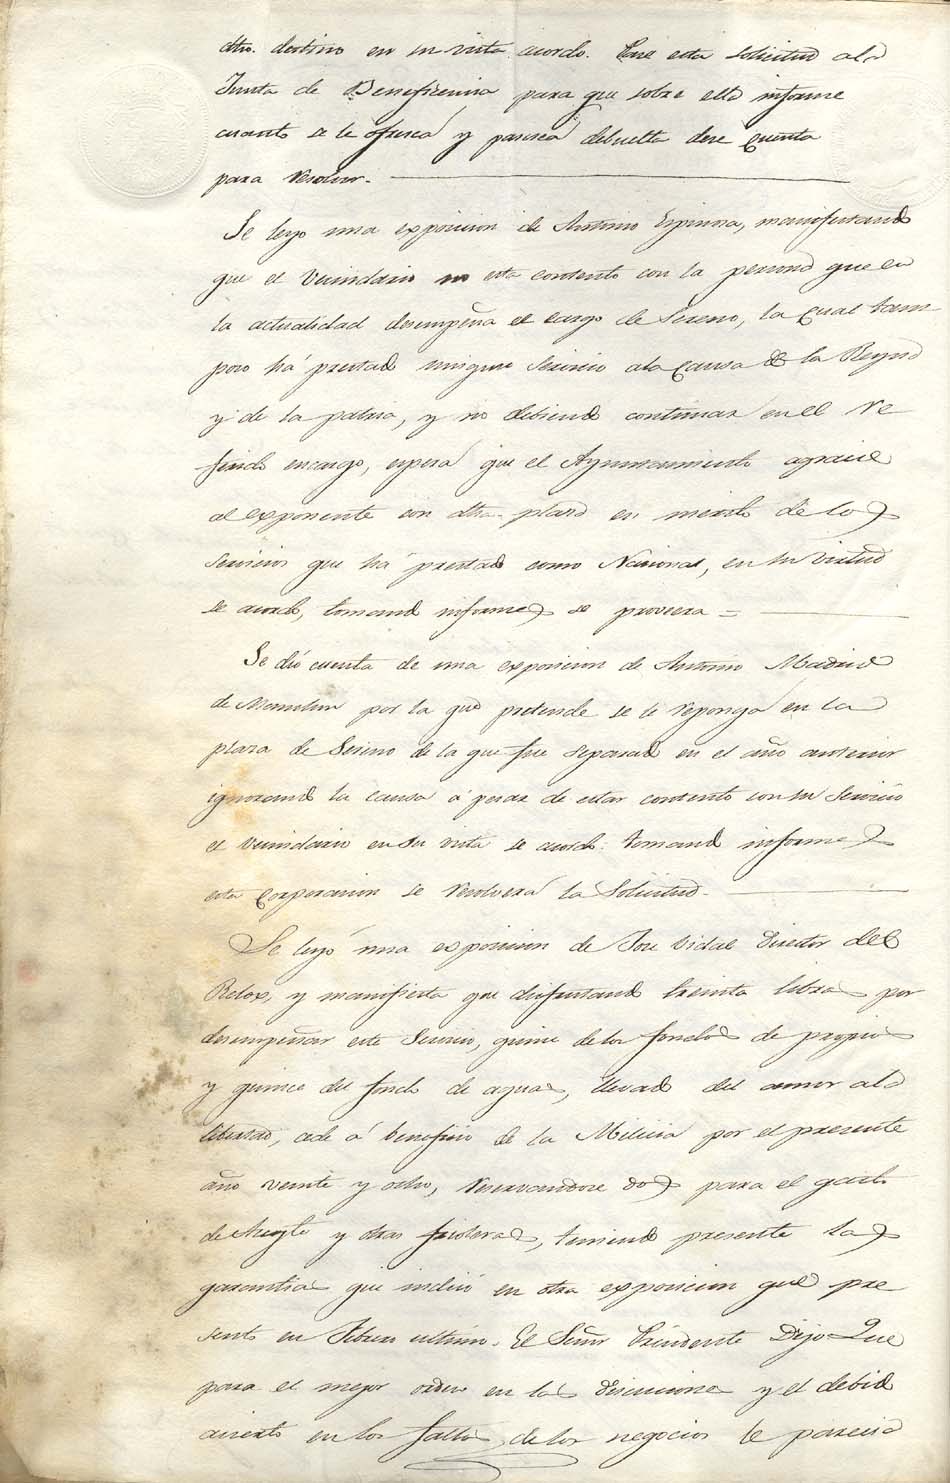 dho. destino en su vista acordo. Pase esta solicitud ala
Junta de Beneficencia para que sobre ella informe
cuanto se le ofresca y paresca debuelta dese cuenta
para resolver.
Se leyo una exposicion de Antonio Espinosa, manifestando
que el vecindario no esta contento con la persona que en
la actualidad desempeña el cargo de Sereno, la cual tam
poco há prestado ningun servicio ala causa de la Reyna
y de la patria, y no debiendo continuar en el re
ferido encargo, espera que el Ayuntamiento agracie
al exponente con dha. plaza en merito de los
servicios que há prestado como Nacional, en su virtud
se acordo, tomando informes se proveera =
Se dió cuenta de una exposicion de Antonio Madrid
de por la que pretende se le reponga en la
plaza de Sereno de la que fue separado en el año anterior
ignorando la causa á pesar de estar contento con su servicio
el vecindario en su vista se acordo: tomando informes
esta corporacion se resolverá la Solicitud.
Se leyó una exposicion de Jose Vidal Director del
Relox, y manifiesta que disfrutando treinta libras por
desempeñar este Servicio, quince de los fondos de propios
y quince del fondo de aguas, llevado del amor ala
libertad, cede á beneficio de la Milicia por el presente
año veinte y ocho, reservandose dos para el gasto
de Aceyte y otras frioleras, teniendo presente las
garantias que indicó en otra exposicion que pre
sentó en Febrero ultimo. El Señor Presidente Dijo: Que
para el mejor orden en las discusiones y el debido
acierto en los fallos de los negocios le parecia